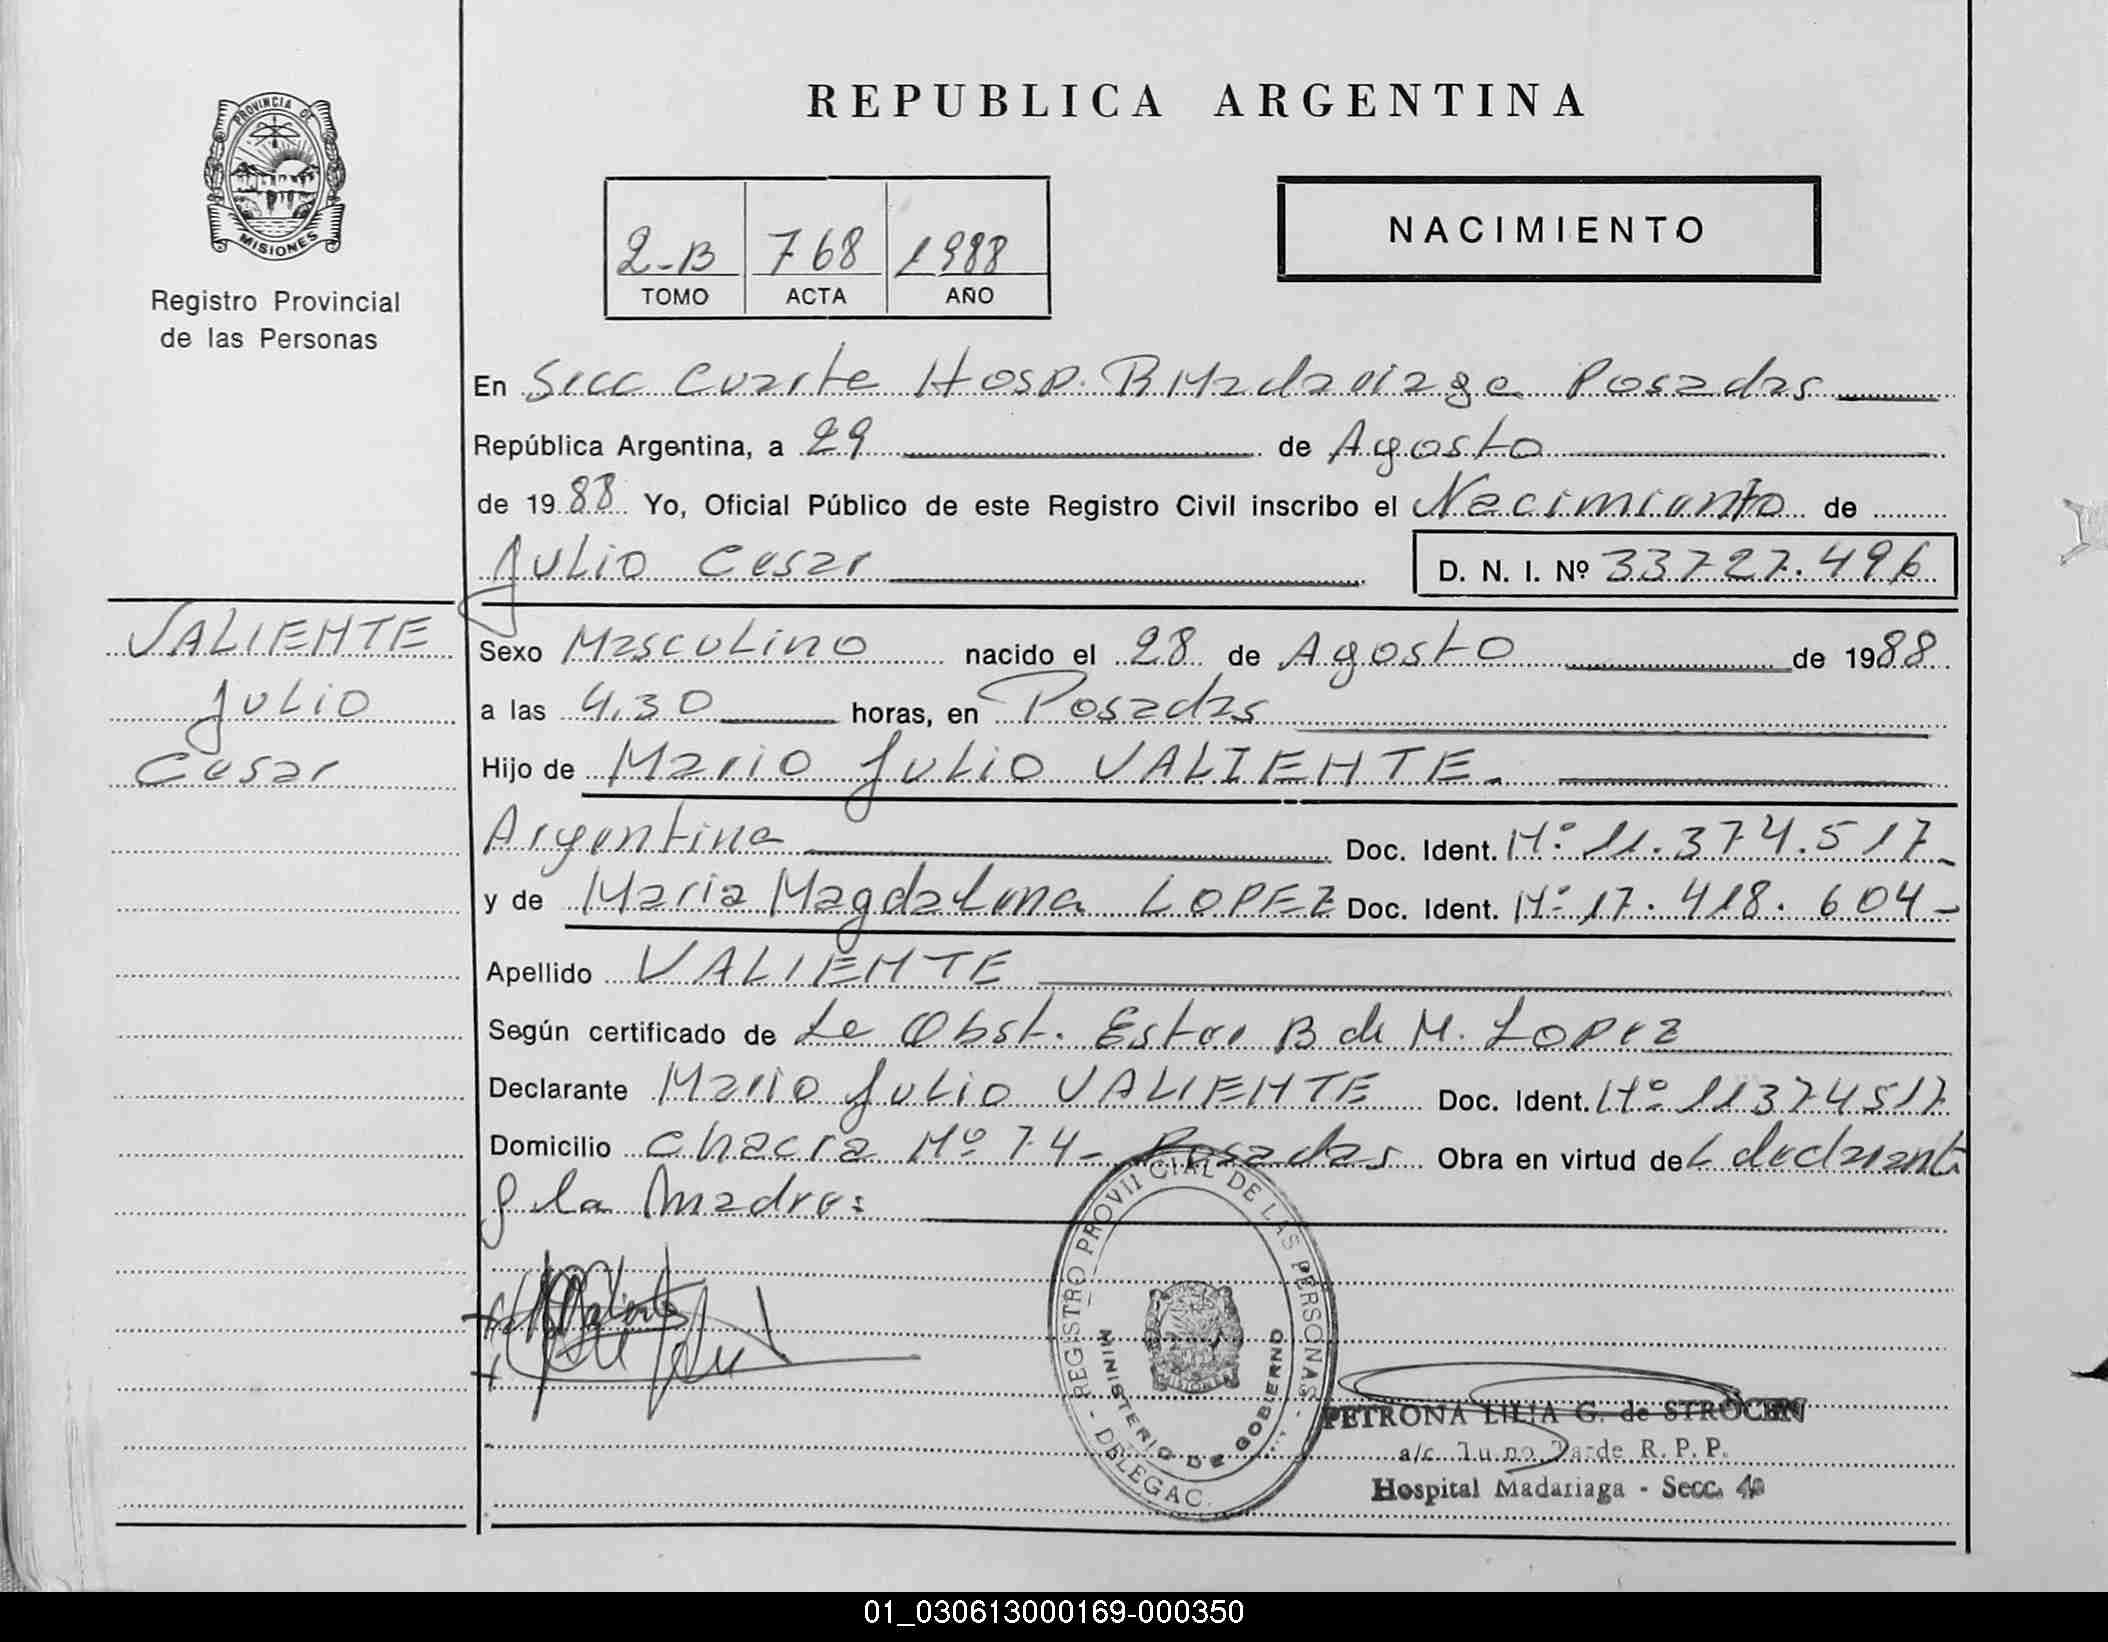 REPUBLICA ARGENTINA
PROVINCIA DE
MISIONES
Registro Provincial
de las Personas
2-B 768 1988
TOMO ACTA AÑO
NACIMIENTO
En Secc Cuarta Hosp. R Madariaga Posadas
República Argentina, a 29 de Agosto
de 1988 Yo, Oficial Público de este Registro Civil inscribo el Nacimiento de
Julio Cesar D. N. I. Nº 33727.496
VALIENTE
Julio
Cesar
Sexo Masculino nacido el 28 de Agosto de 1988
a las 4,30 horas, en Posadas
Hijo de Mario Julio VALIENTE.
Argentina Doc. Ident. Nº 11.374.517-
y de Maria Magdalena LOPEZ Doc. Ident. Nº 17.418.604-
Apellido VALIENTE
Según certificado de La Obst. Ester B de M. LOPEZ
Declarante Mario Julio VALIENTE Doc. Ident. Nº 11374517
Domicilio Chacra Nº 74- Posadas Obra en virtud de declarante
y la Madre:
REGISTRO PROVINCIAL DE LAS PERSONAS
MINISTERIO DE GOBIERNO
- DELEGAC.
MISIONES
PETRONA LILIA G. de STROCEN
a/c. Turno Tarde R. P. P.
Hospital Madariaga - Secc. 4ª
01_030613000169-000350